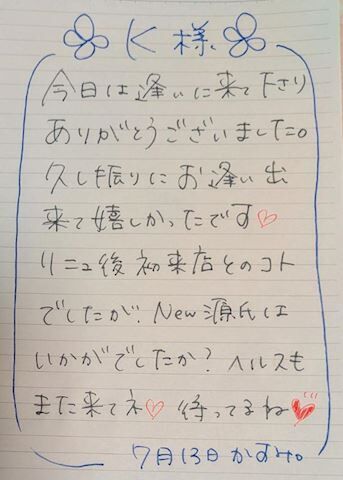 K様
今日は逢いに来て下さり
ありがとうございました。
久し振りにお逢い出
来て嬉しかったです♡
リニュ後初来店とのコト
でしたが、New源氏は
いかがでしたか？ヘルスも
また来てネ♡ 待ってるね♥
7月13日 かすみ。